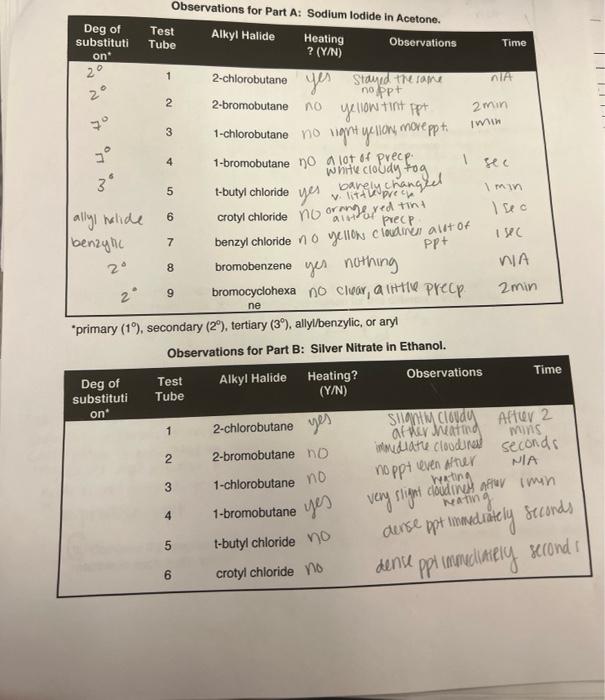 Observations for Part A: Sodium Iodide in Acetone.
Deg of substituti on* Test Tube Alkyl Halide Heating ? (Y/N) Observations Time
2° 1 2-chlorobutane yes Stayed the same no ppt n/A
2° 2 2-bromobutane no yellow tint ppt 2 min
1° 3 1-chlorobutane no light yellow, more ppt. 1 min
1° 4 1-bromobutane no a lot of precp. white cloudy fog 1 sec
3° 5 t-butyl chloride yes barely changed v. little prech 1 min
allyl helide 6 crotyl chloride no orange red tint a lot of precp 1 sec
benzylic 7 benzyl chloride no yellow cloudiness alot of ppt 1 sec
2° 8 bromobenzene yes nothing N/A
2° 9 bromocyclohexa ne no clear, a little precp 2 min
*primary (1°), secondary (2°), tertiary (3°), allyl/benzylic, or aryl
Observations for Part B: Silver Nitrate in Ethanol.
Deg of substituti on* Test Tube Alkyl Halide Heating? (Y/N) Observations Time
1 2-chlorobutane yes slightly cloudy after heating After 2 mins
2 2-bromobutane no immediate cloudiness seconds
3 1-chlorobutane no no ppt even after heating N/A
4 1-bromobutane yes very slight cloudiness after heating 1 min
5 t-butyl chloride no dense ppt immediately seconds
6 crotyl chloride no dense ppt immediately seconds